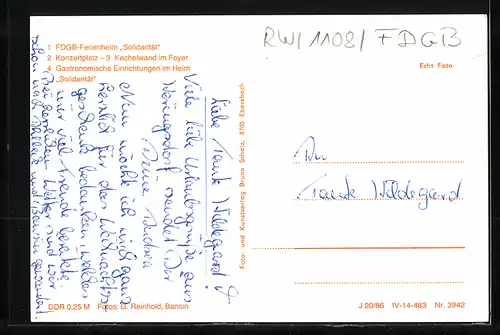 1 FDGB-Ferienheim „Solidarität"
2 Konzertplatz – 3 Kachelwand im Foyer
4 Gastronomische Einrichtungen im Heim
„Solidarität"
RW/1108/FDGB
Echt Foto
Liebe Tante Hildegard!
Viele liebe Urlaubsgrüße aus
sendet Dir
Deine Andrea
Nun möchte ich mich ganz
herzlich für das Weihnachts-
geschenk bedanken, welches
mir viel Freude bereitete.
Bei herrlichem Wetter sind wir
schon nach Sellin und Bansin gewandert.
Foto- und Kunstverlag Bruno Scholz, 8705 Ebersbach
An
Tante Hildegard
DDR 0,25 M Fotos: G. Reinhold, Bansin
J 20/86 IV-14-483 Nr. 3942